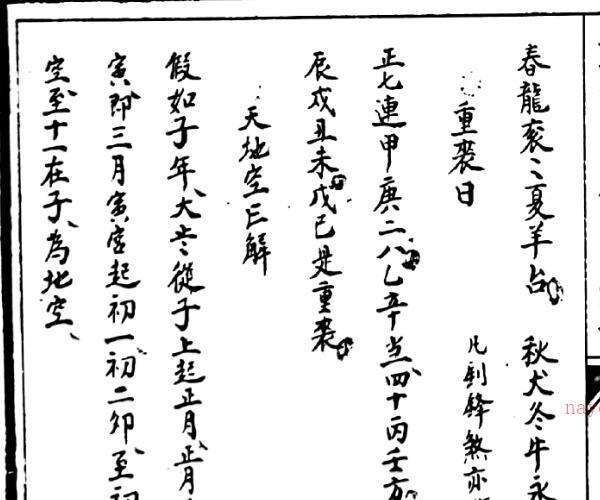 春龍衮〻夏羊台 秋犬冬牛永
重喪日 凡到蜂煞亦
正七連甲庚二八乙辛当四十丙壬方
辰戌丑未戊己是重喪
天地空亡解
假如子年大歩從子上起正月正月
寅即三月寅宮起初一初二卯至初
空至十一在子為北空
nay